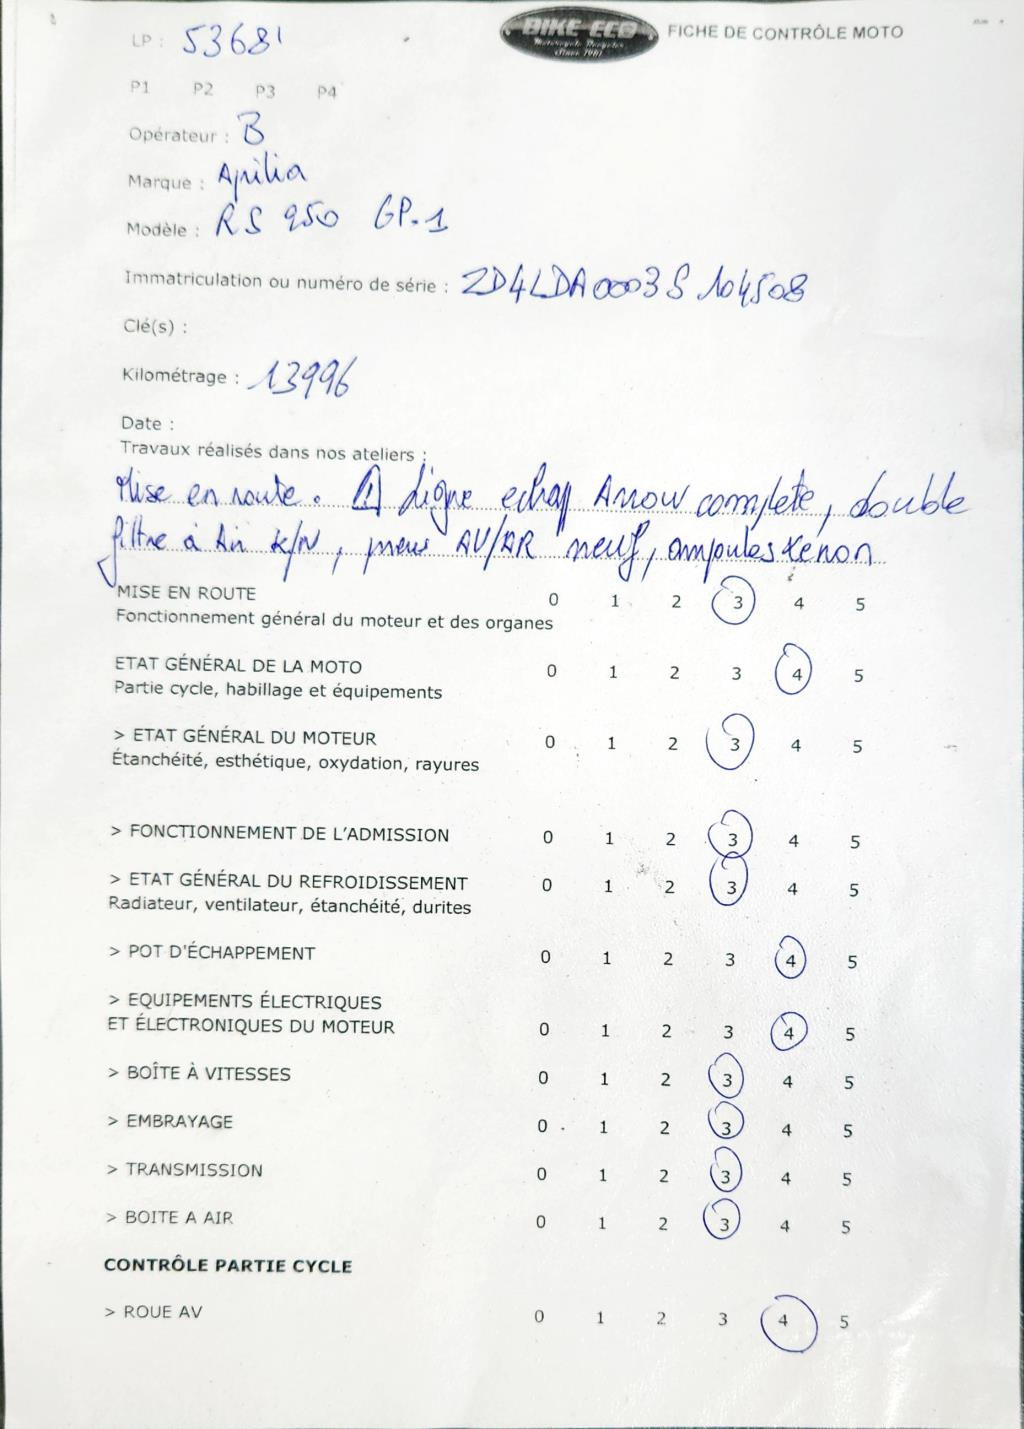 BIKE-ECO
Motorcycle Recycler
Since 1981
FICHE DE CONTRÔLE MOTO
LP : 53681
P1 P2 P3 P4
Opérateur : B
Marque : Aprilia
Modèle : RS 250 GP.1
Immatriculation ou numéro de série : ZD4LDA0003S104508
Clé(s) :
Kilométrage : 13996
Date :
Travaux réalisés dans nos ateliers :
Mise en route. Ligne echap Arrow complete, double
filtre à Air K/N, pneus AV/AR neuf, ampoules Xenon
MISE EN ROUTE 0 1 2 3 4 5
Fonctionnement général du moteur et des organes
ETAT GÉNÉRAL DE LA MOTO 0 1 2 3 4 5
Partie cycle, habillage et équipements
> ETAT GÉNÉRAL DU MOTEUR 0 1 2 3 4 5
Étanchéité, esthétique, oxydation, rayures
> FONCTIONNEMENT DE L'ADMISSION 0 1 2 3 4 5
> ETAT GÉNÉRAL DU REFROIDISSEMENT 0 1 2 3 4 5
Radiateur, ventilateur, étanchéité, durites
> POT D'ÉCHAPPEMENT 0 1 2 3 4 5
> EQUIPEMENTS ÉLECTRIQUES
ET ÉLECTRONIQUES DU MOTEUR 0 1 2 3 4 5
> BOÎTE À VITESSES 0 1 2 3 4 5
> EMBRAYAGE 0 1 2 3 4 5
> TRANSMISSION 0 1 2 3 4 5
> BOITE A AIR 0 1 2 3 4 5
CONTRÔLE PARTIE CYCLE
> ROUE AV 0 1 2 3 4 5